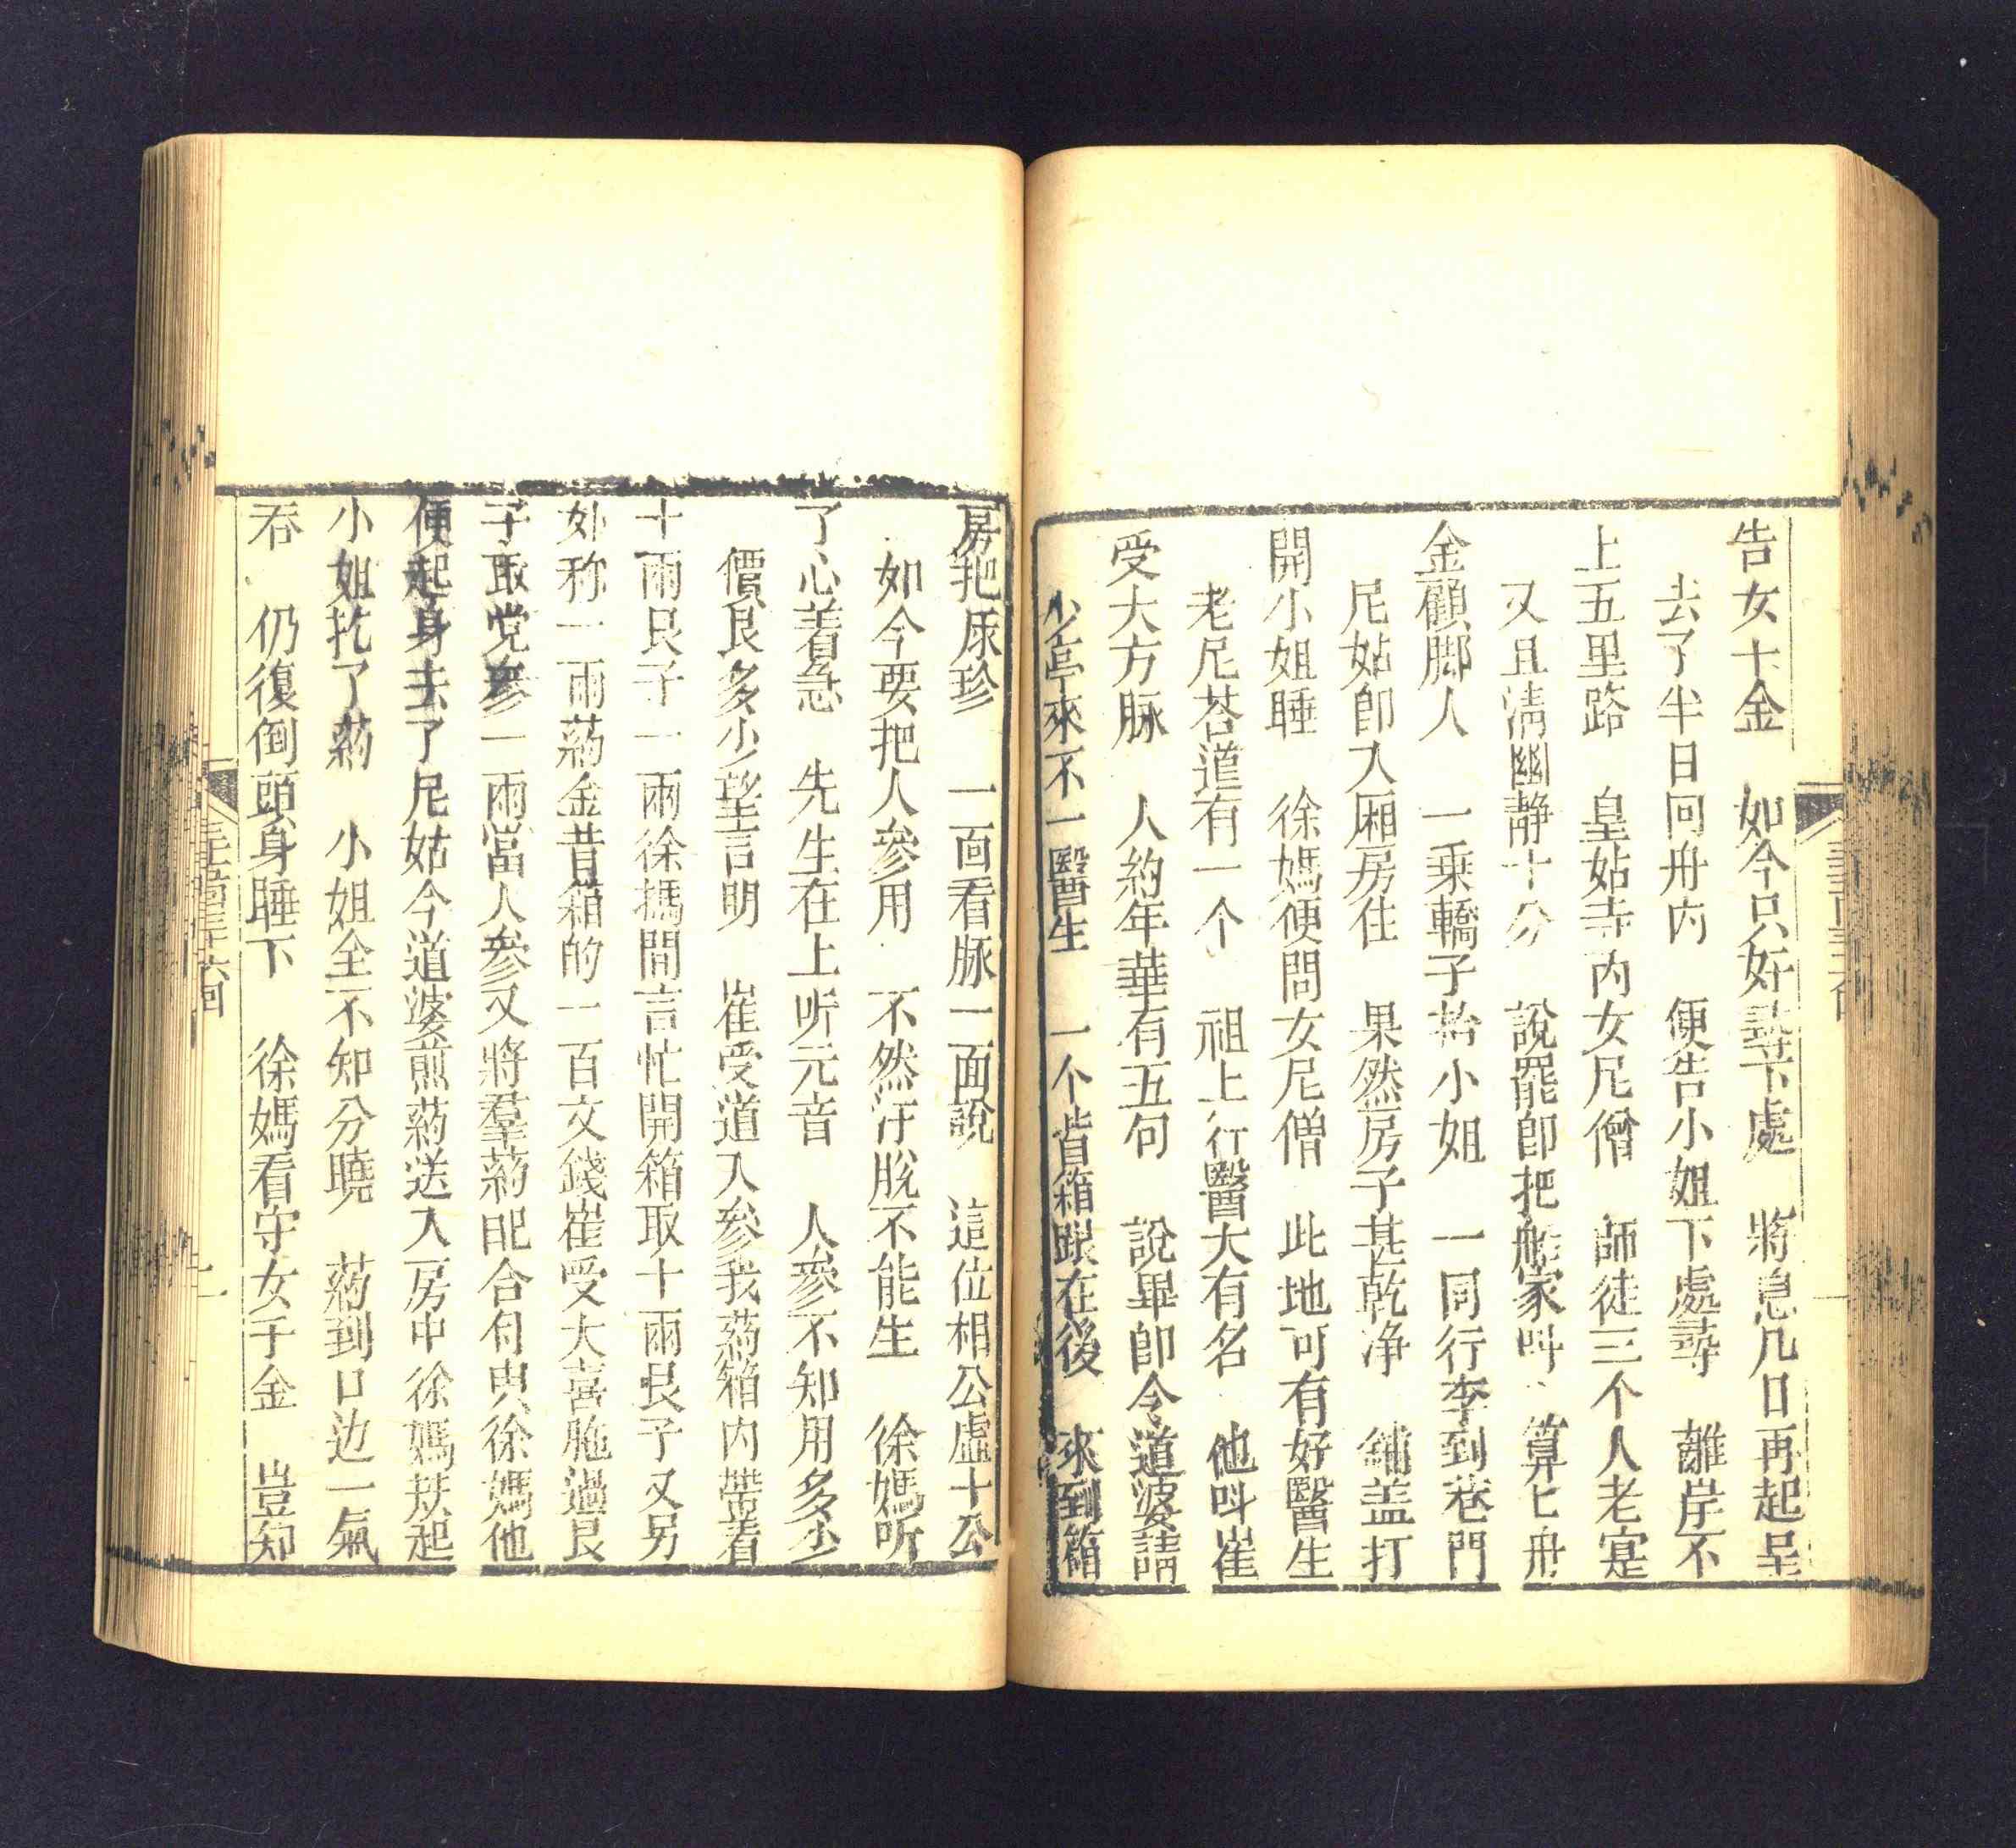 告女千金　如今只好尋下處　將息几日再起呈
去了半日回舟内　便告小姐下處尋　離岸不
上五里路　皇姑寺内女尼僧　師徒三个人老寔
又且清幽静十分　說罷即把船家叫　算匕舟
金顧脚人　一乘轎子抬小姐　一同行李到菴門
尼姑即入廂房住　果然房子甚乾净　鋪盖打
開小姐睡　徐媽便問女尼僧　此地可有好醫生
老尼荅道有一个　祖上行醫大有名　他叫崔
受大方脉　人約年華有五旬　說畢即令道婆請
少亭來不一醫生　一个背箱跟在後　來到箱
房把尿珍　一面看脉一面說　這位相公虚十公
如今要把人參用　不然汗脱不能生　徐媽听
了心着急　先生在上听元音　人參不知用多少
價艮多少望言明　崔受道人參我葯箱内帶着
十兩艮子一兩徐媽聞言忙開箱取十兩艮子又另
外称一兩葯金昔箱的一百文錢崔受大喜施過艮
子取党參一兩當人參又將羣葯配合付與徐媽他
便起身去了尼姑令道婆煎葯送入房中徐媽扶起
小姐扢了葯　小姐全不知分曉　葯到口边一氣
吞　仍復倒頭身睡下　徐媽看守女千金　豈知